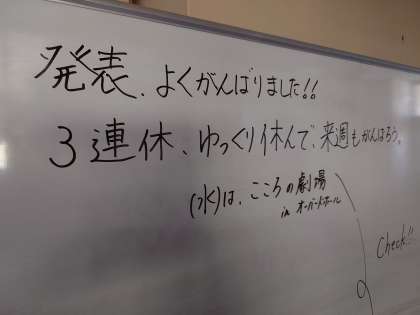 発表、よくがんばりました!!
3連休、ゆっくり休んで、来週もがんばろう。
(水)は、こころの劇場
in オーバードホール
Check!!